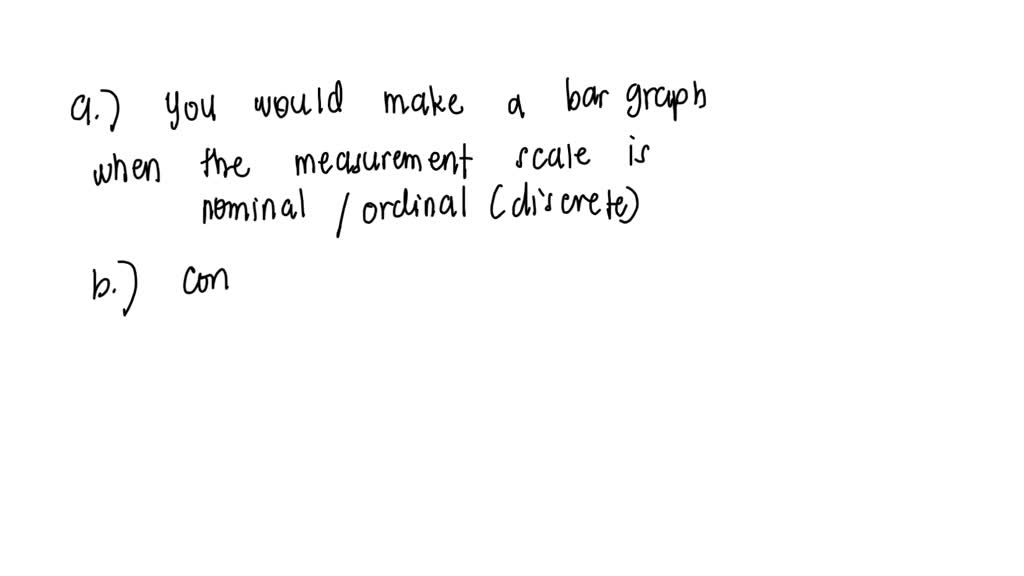 a.) you would make a bar graph
when the measurement scale is
nominal / ordinal (discrete)
b.) con